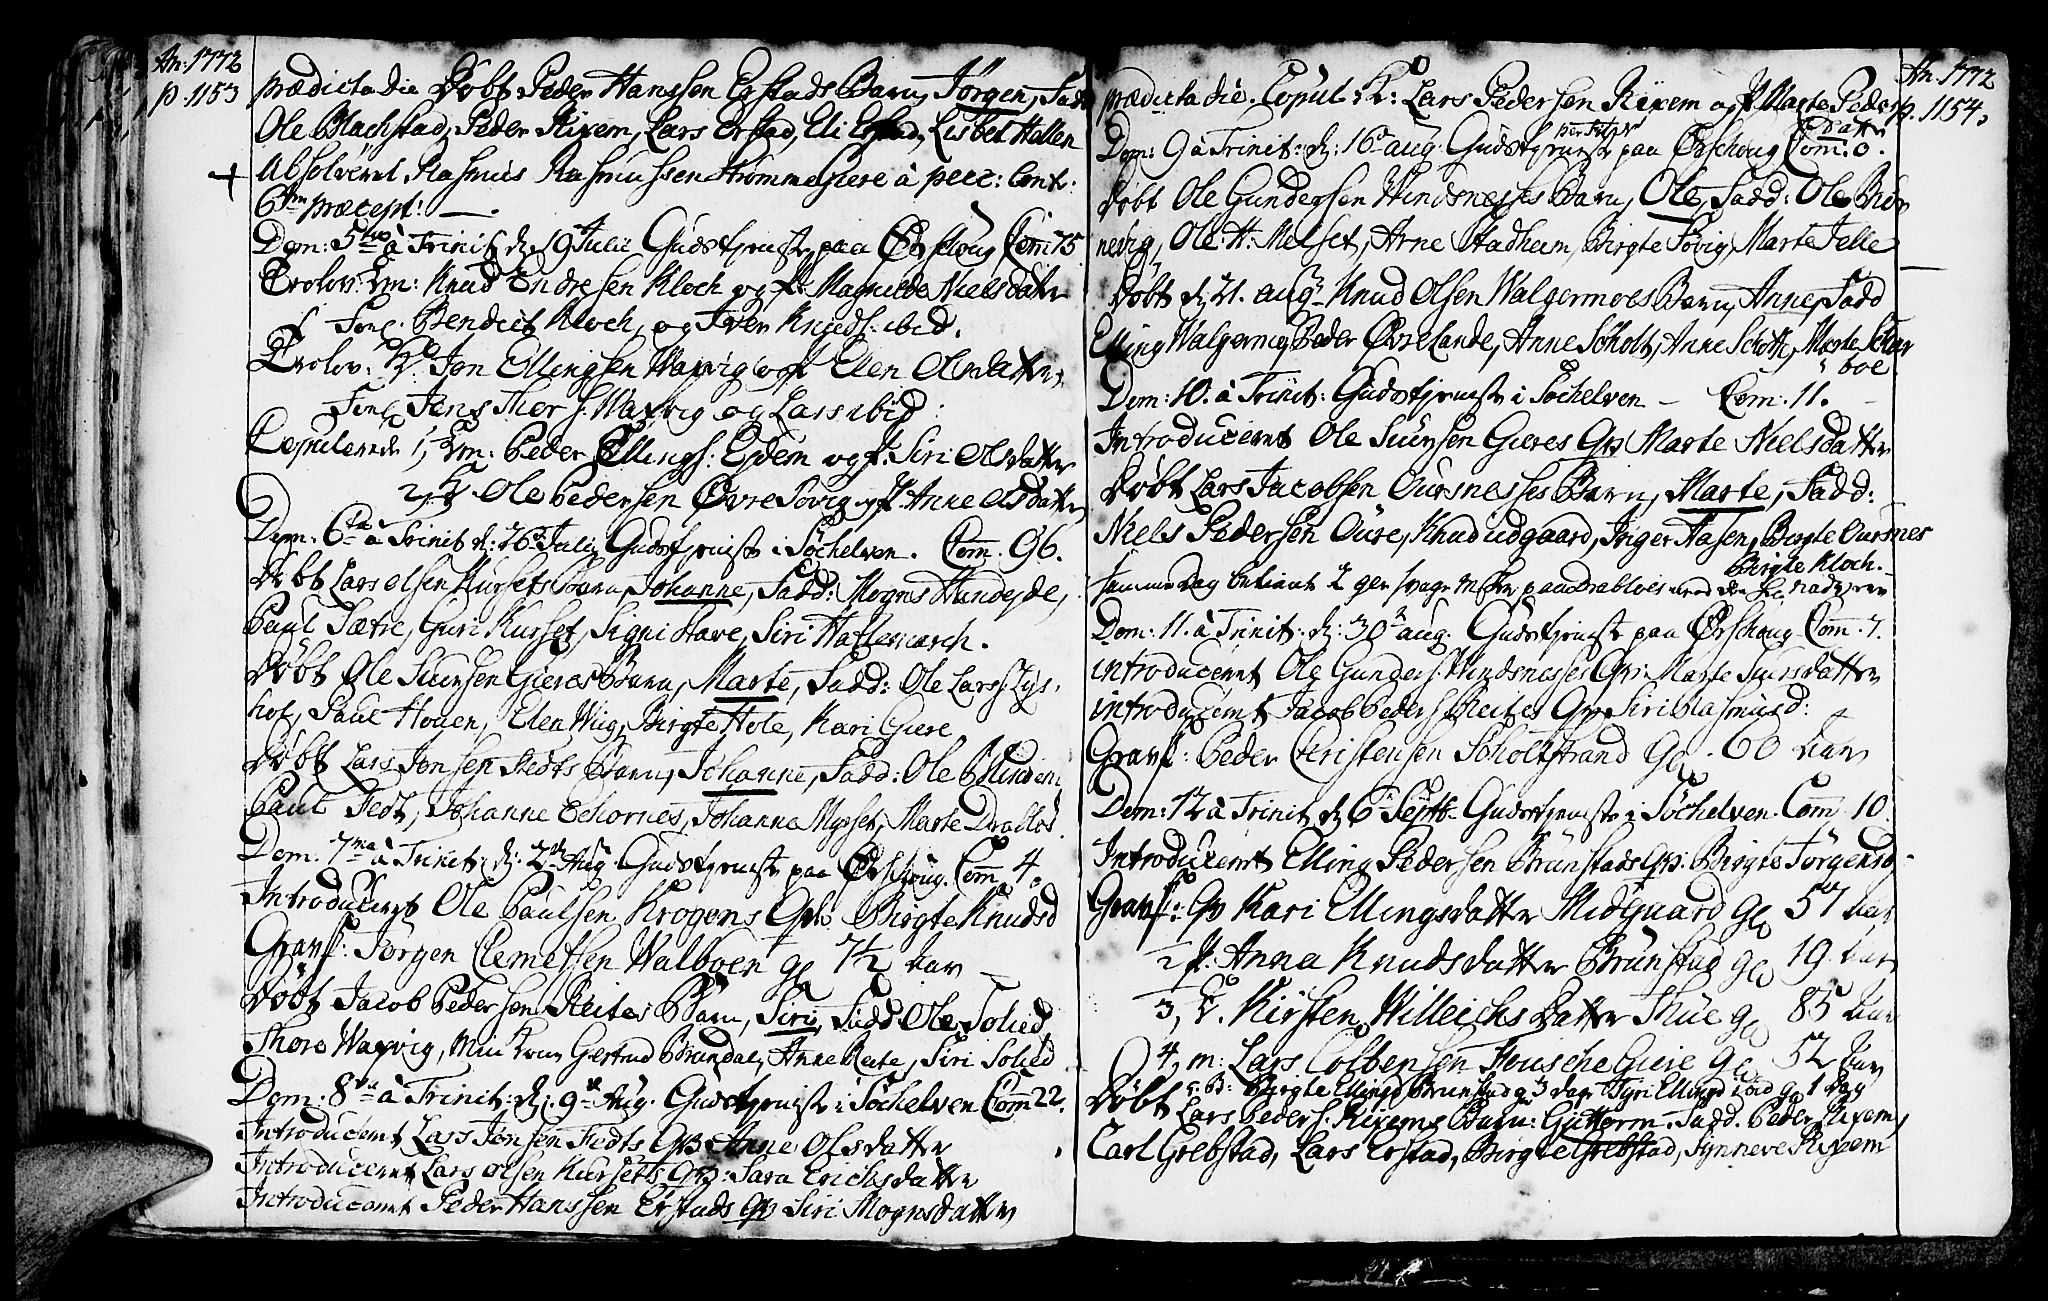 An: 1772
p. 1153
prædicta die Døbt Peder Hanssen Erstads Barn, Jørgen, Fadd
Ole Blachstad, Peder Rixem, Lars Erstad, Eli Erstad, Lisbet Hallen
+ Absolveret Rasmus Rasmussen StrømmeGiere à pecc: Contr:
6tm præcept:
Dom: 5ta à Trinit: d: 19 Julii Gudstjeneste paa Ørschoug Com: 75
Trolov: Em: Knud Endresen Kloch og f: Magnilde Nielsdatter
Forl. Bendict Kloch, og Iver Knuds: ibid.
Trolov: K: Jon Ellingsen Waxvig og f Elen Olsdatter,
Forl Jens Thors: Waxvig og Lars ibid:
Copulerede 1, Em: Peder Ellings: Eidem og f. Siri Olsdatter
2, K Ole Pedersen Øvre Søvig og f: Anne Olsdatter
Dom: 6ta à Trinit d: 26 Julii Gudstjeneste i Søchelven. Com: 96.
Døbt Lars Olsen Kursets Barn, Johanne, Fadd: Mogns Hundeyde,
Paul Sætre, Guri Kurset, Signi Stave, Siri Hatlemarch.
Døbt Ole Siursen Gieres Barn, Marte, Fadd: Ole Lars: Lys,
hol, Paul Houen, Elen Wiig, Birgte Hole, Kari Giere
Døbt Lars Jonsen Fedts Barn, Johanne, Fadd: Ole Blinden:
Paul Fedt, Johanne Echornes, Johanne Mysset, Marte Drabløs.
Dom: 7ma à Trinit: d: 2d Aug Gudstjeneste paa Ørschoug. Com 4.
Introduceret Ole Paulsen Krogens Qv: Birgte Knudsd
Gravf: Jørgen Clemetsen Walboen gl 7½ Aar
Døbt Jacob Pedersen Reites Barn, Siri, Fadd Ole Solied,
Thore Waxvig, Min Kone Giertrud Brundal, Anne Reite, Siri Solied
Dom: 8va à Trinit: d: 9d Aug. Gudstjeneste i Søchelven Com 22.
Introduceret Lars Jonsen Fedts Qv Anne Olsdatter
Introduceret Lars Olsen Kursets Qv: Sara Erichsdatter
Introduceret Peder Hanssen Erstads Qv Siri Mognsdatter
An. 1772
p. 1154.
prædicta die. Copul: K: Lars Pedersen Rixem og f Marte Peders
datter
Dom: 9 à Trinit: d: 16 aug. Gudstjeneste paa Ørschoug Com. 0.
Døbt Ole Gundersen Windsnesses Barn, Ole, Fadd: Ole Bru
nevig, Ole: H: Melset, Arne Stadheim, Birgte Søvig, Marte Jelle
Døbt d: 21. aug: Knud Olsen Walgermoes Barn, Anne, Fadd
Elling Walgermoe, Peder Øvrelande, Anne Scholt, Anne Schotte, Marte
boe
Dom: 10. à Trinit: Gudstjeneste i Søchelven – Com: 11. –
Introduceret Ole Siursen Gieres Qv Marte Nielsdatter
Døbt Lars Jacobsen Oursnesses Barn, Marte, Fadd:
Niels Pedersen Oure, Knud Udgaard, Inger Aasen, Birgte Oursnes
Birgte Kloch.
samme Dag betient 2 gen svage paa Drabløes med den
Dom: 11. à Trinit: d: 30 aug. Gudstjeneste paa Ørschoug Com. 7.
introduceret Ole Gunders: Windsnesses Qv: Marte Siursdatter
introduceret Jacob Peders: Reites Qv Siri Rasmusd:
Gravf: Peder Christensen Scholtstrand gl. 60 Aar
Dom: 12 à Trinit d: 6 Septb. Gudstjeneste i Søchelven. Com: 10.
Introduceret Elling Pedersen Brunstads Qv: Birgte Jørgensd.
Gravf: Qv Kari Ellingsdatter Midgaard gl 57 Aar
2 f: Anna Knudsdatter Brunstad gl 19. Aar
3, E. Kirsten Willeichsdatter Thue gl 85 Aar
4, m: Lars Colbensen HouscheGiere gl 52 Aar
5. B: Birgte Ellingd Brunstad gl 3 dage Syri Ellingd ibid gl 1 Dag
Døbt Lars Peders: Rixems Barn: Guttorm. Fadd. Peder Rixem,
Carl Grebstad, Lars Erstad, Birgte Grebstad, Synneve Rixem